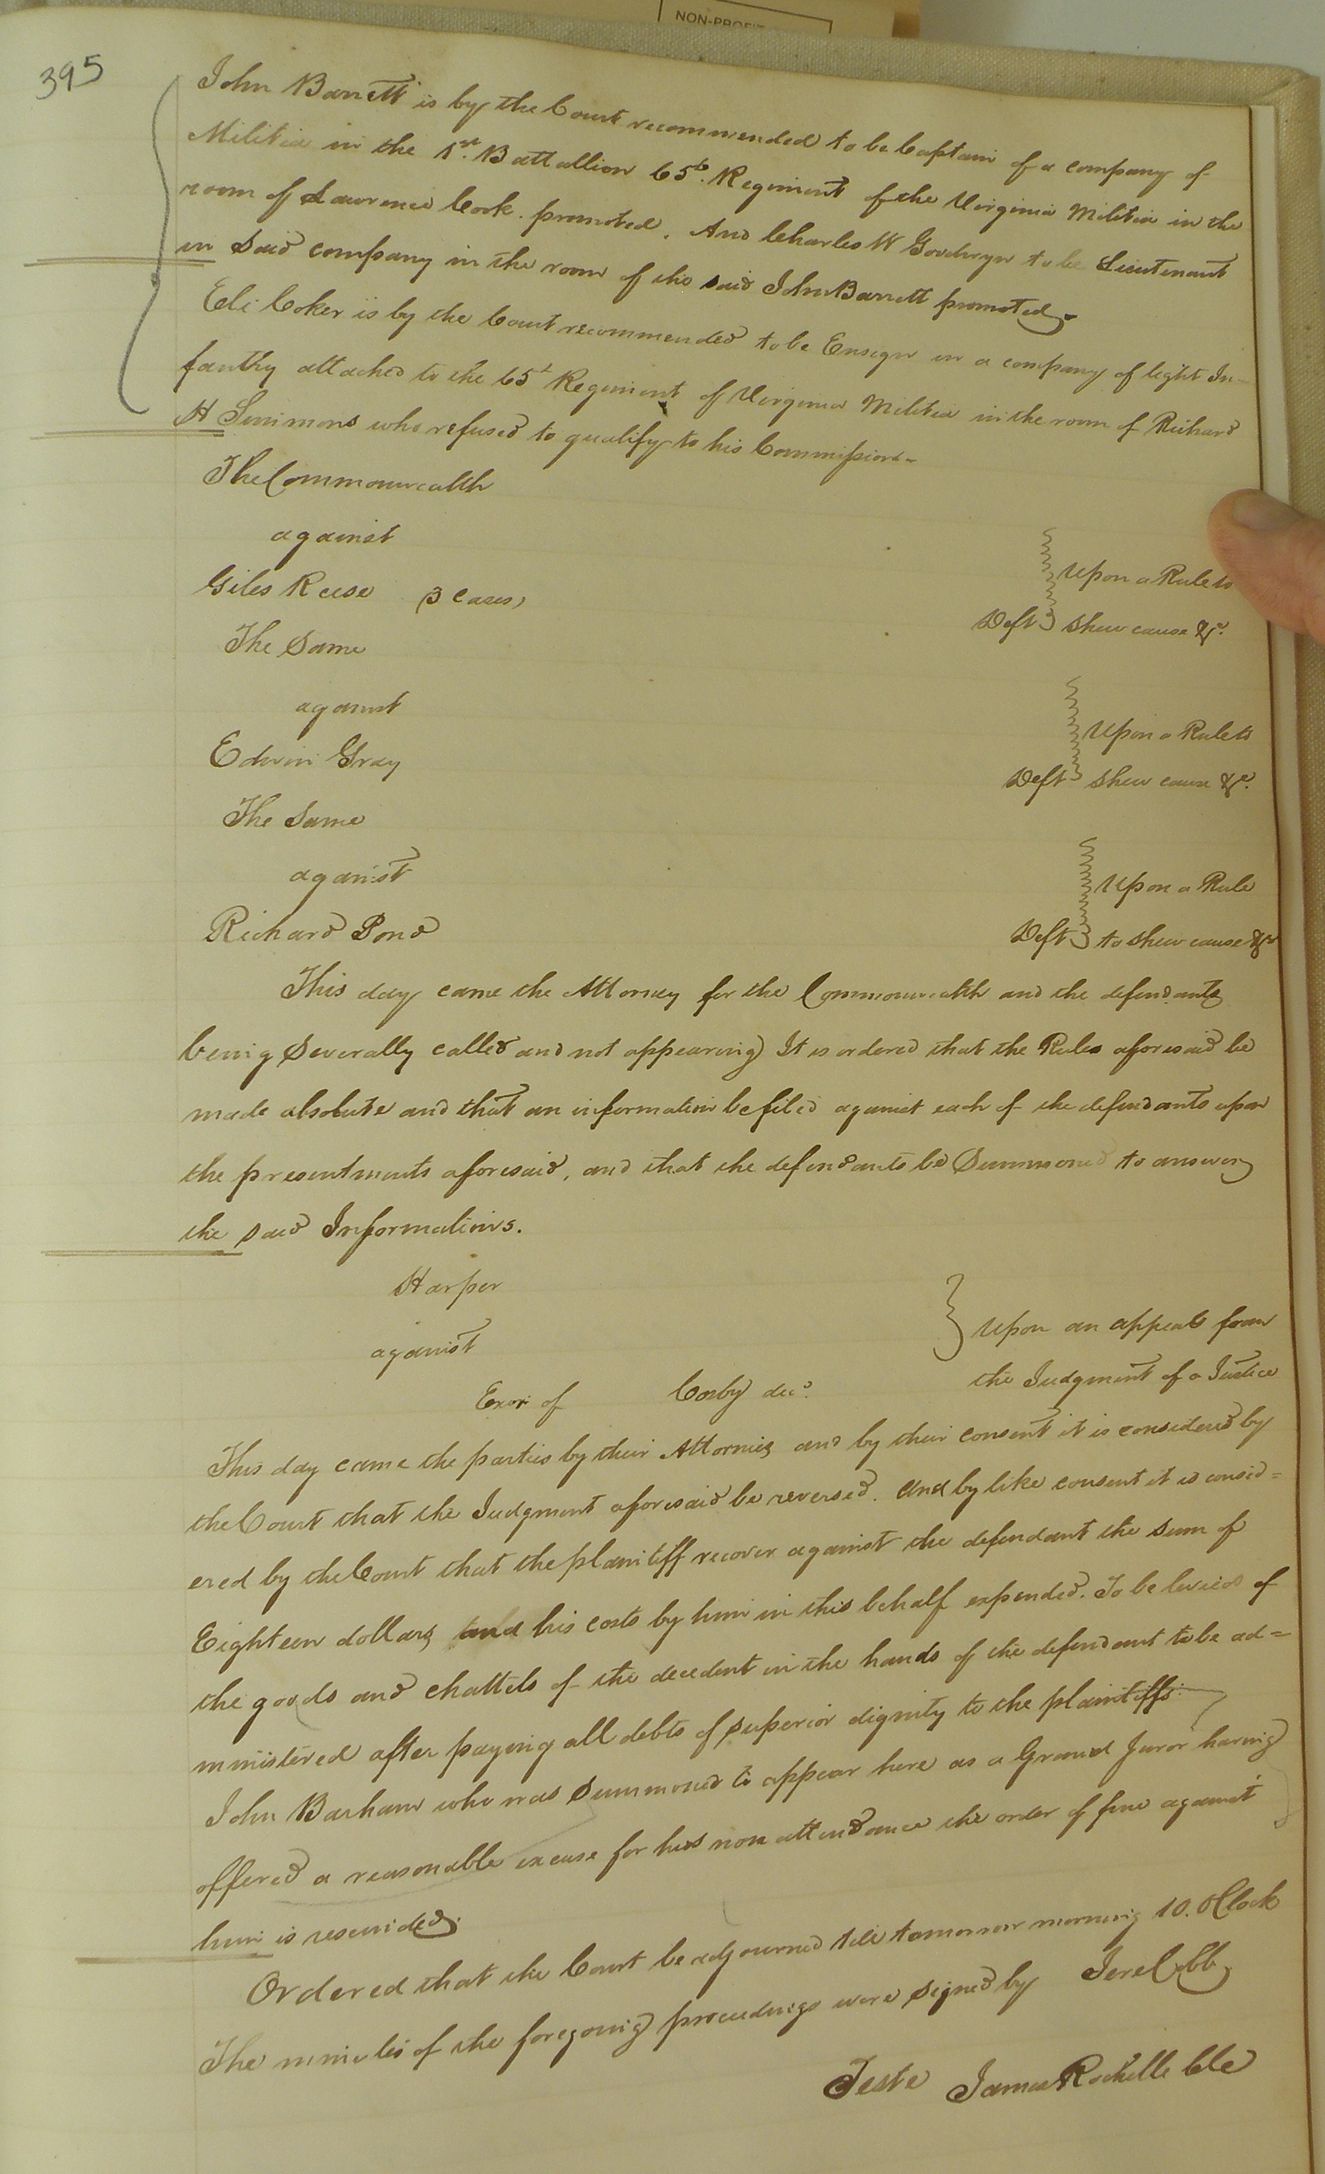 NON-PROFIT
395
John Barrett is by the Court recommended to be Captain of a company of
Militia in the 1st. Battallion 65th. Regiment of the Virginia Militia in the
room of Lawrence Cook promoted. And Charles W Goodwyn to be Lieutenant
in said company in the room of the said John Barrett promoted.
Eli Coker is by the Court recommended to be Ensign in a company of light In-
fantry attached to the 65t Regiment of Virginia Militia in the room of Richard
H Simmons who refused to qualify to his Commission-
The Commonwealth
against
Giles Reese (3 Cases)
Deft
Upon a Rule to
shew cause &c.
The Same
against
Edwin Gray
Deft
Upon a Rule to
shew cause &c.
The Same
against
Richard Pond
Deft
Upon a Rule
to shew cause &c
This day came the Attorney for the Commonwealth and the defendants
being Severally called and not appearing) It is ordered that the Rules aforesaid be
made absolute and that an information be filed against each of the defendants upon
the presentments aforesaid, and that the defendants be Summoned to answer
the said Informations.
Harper
against
Exor of Cosby dec.
Upon an appeal from
the Judgment of a Justice
This day came the parties by their Attornies and by their consent it is considered by
the Court that the Judgment aforesaid be reversed. And by like consent it is consid=
ered by the Court that the plaintiff recover against the defendant the sum of
Eighteen dollars and his costs by him in this behalf expended. To be levied of
the goods and chattels of the decedent in the hands of the defendant to be ad=
ministered after paying all debts of superior dignity to the plaintiffs.
John Barham who was Summoned to appear here as a Grand Juror having
offered a reasonable excuse for his non attendance the order of fine against
him is rescinded.
Ordered that the Court be adjourned till tomorrow morning 10. OClock
The minutes of the foregoing proceedings were signed by Jere Cobb
Teste James Rochelle Cle